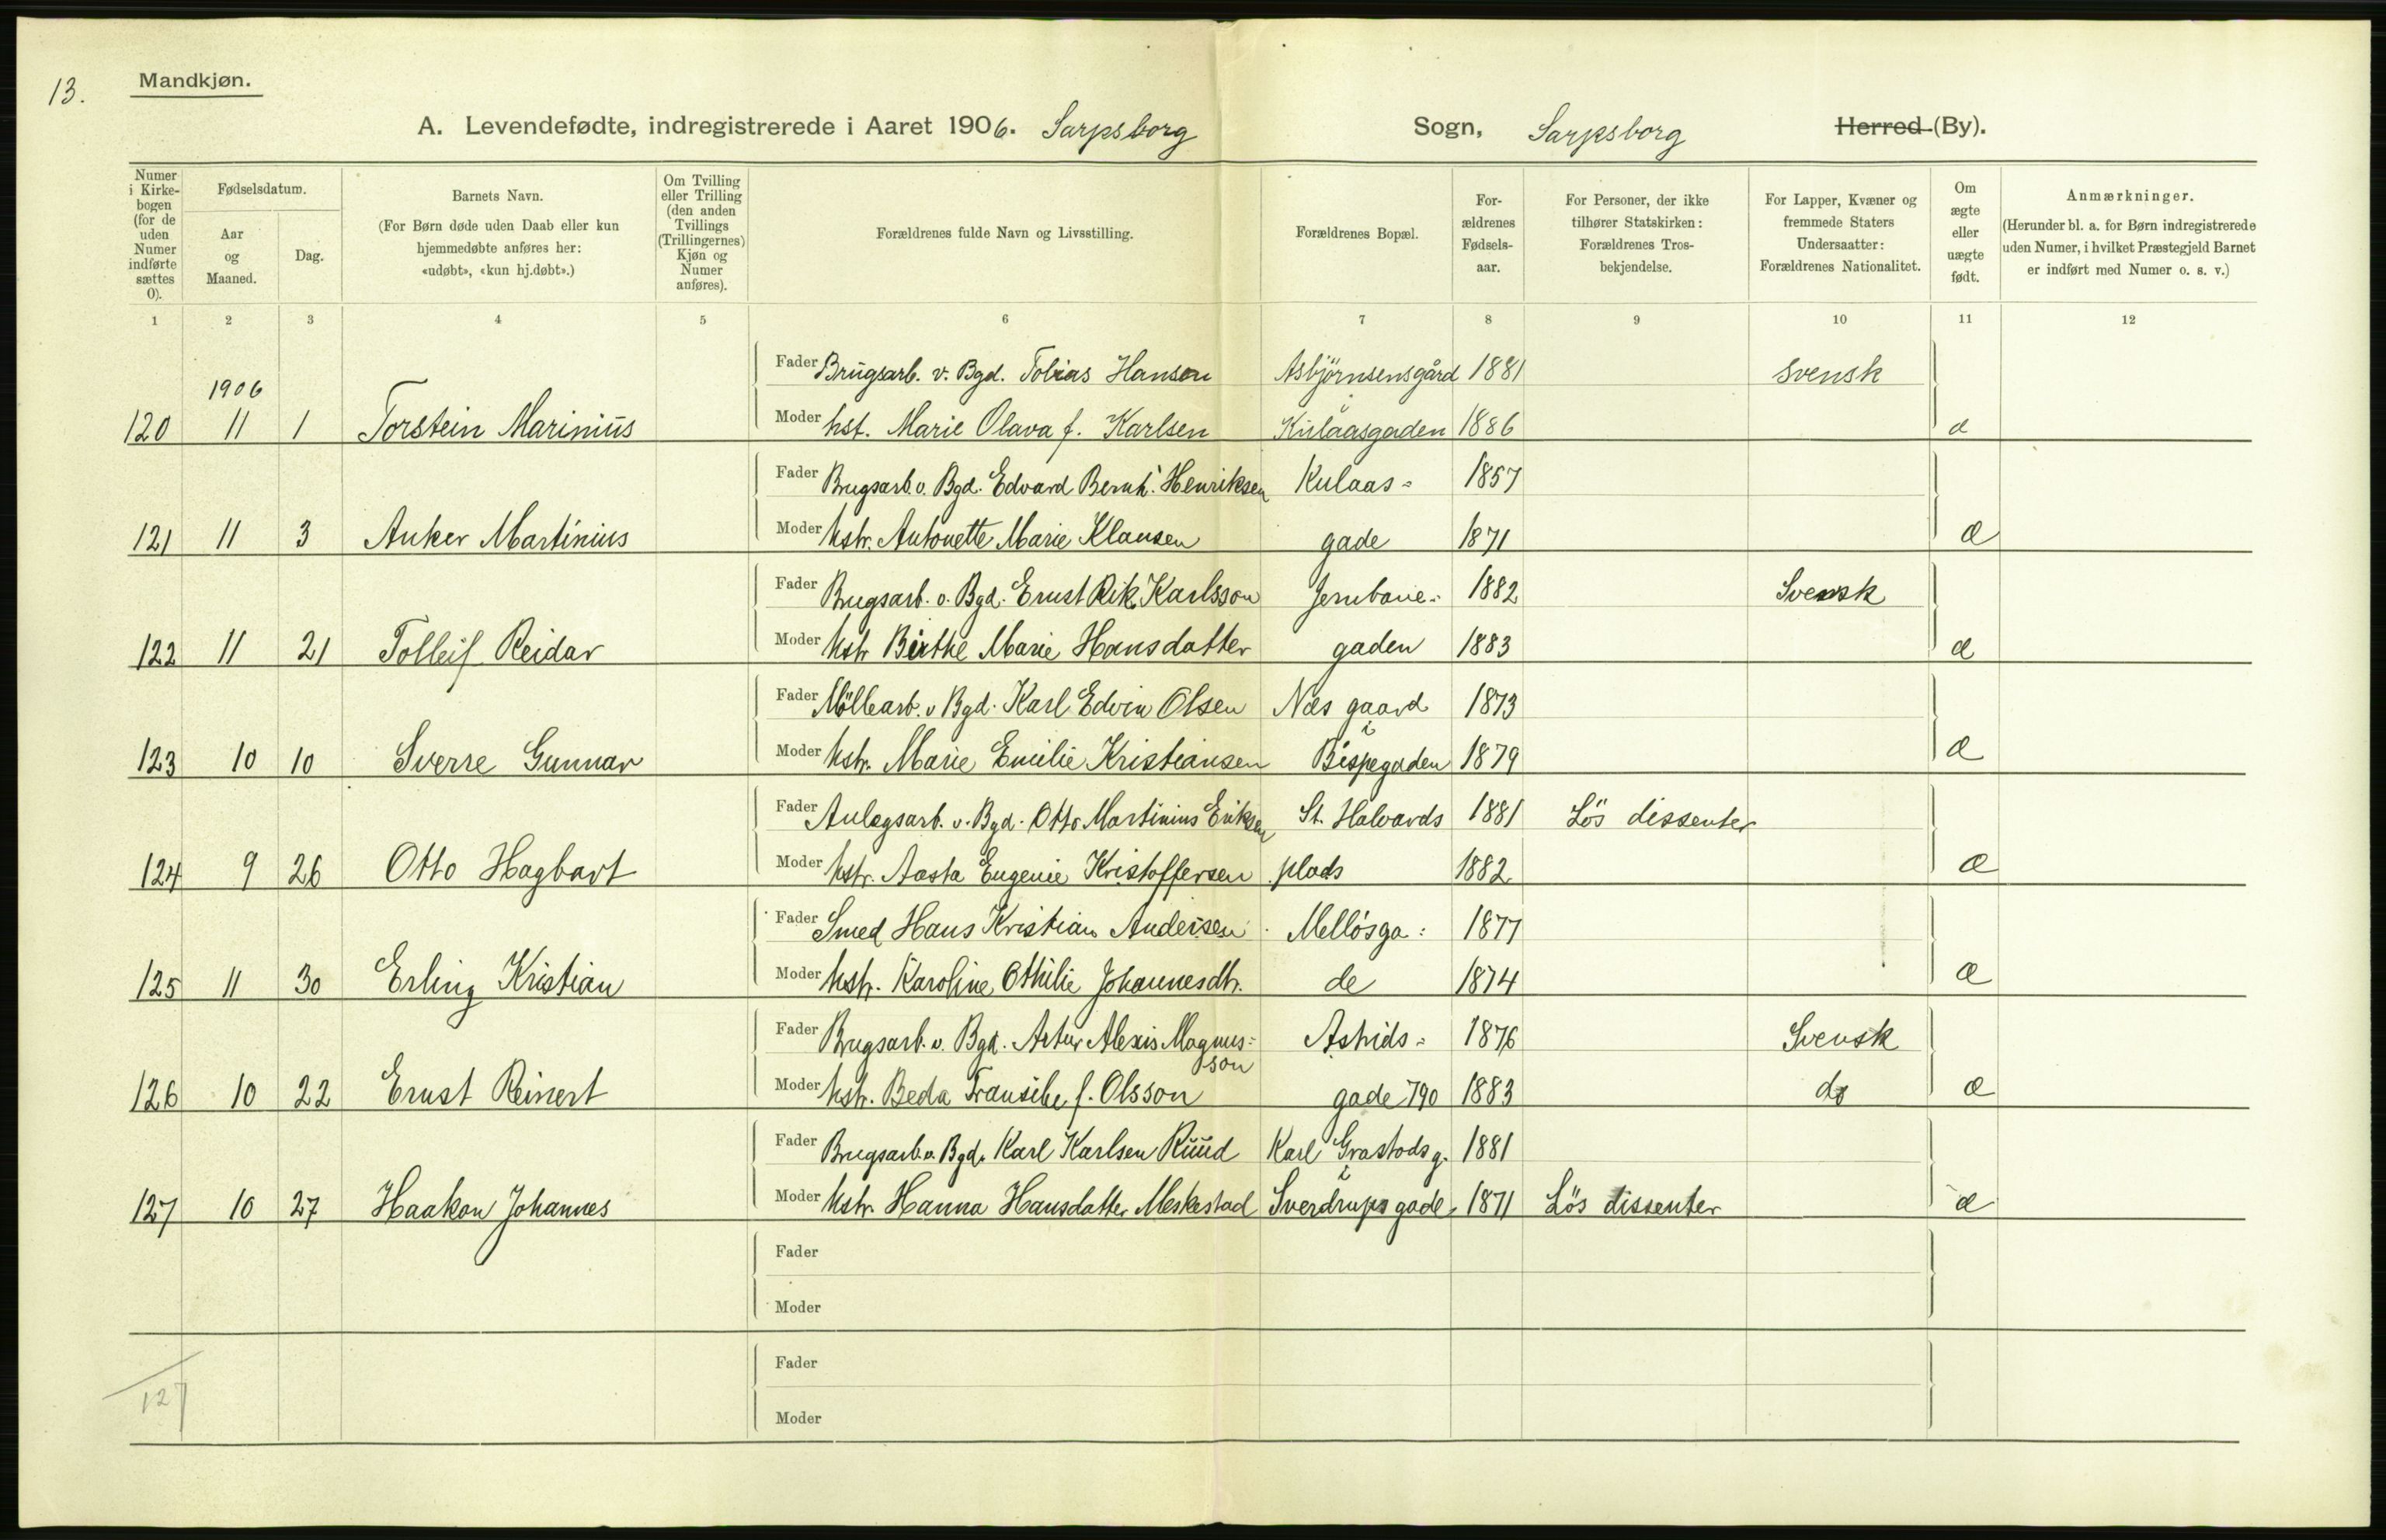 13.
Mandkjøn.
A. Levendefødte, indregistrerede i Aaret 1906. Sarpsborg Sogn, Sarpsborg Herred (By).
Numer i Kirkebogen (for de uden Numer indførte sættes 0).
Fødselsdatum.
Aar og Maaned.
Dag.
Barnets Navn.
(For Børn døde uden Daab eller kun hjemmedøbte anføres her: «udøbt», «kun hj.døbt».)
Om Tvilling eller Trilling (den anden Tvillings (Trillingernes) Kjøn og Numer anføres).
Forældrenes fulde Navn og Livsstilling.
Forældrenes Bopæl.
Forældrenes Fødselsaar.
For Personer, der ikke tilhører Statskirken: Forældrenes Trosbekjendelse.
For Lapper, Kvæner og fremmede Staters Undersaatter: Forældrenes Nationalitet.
Om ægte eller uægte født.
Anmærkninger.
(Herunder bl. a. for Børn indregistrerede uden Numer, i hvilket Præstegjeld Barnet er indført med Numer o. s. v.)
1 2 3 4 5 6 7 8 9 10 11 12
Fader Brugsarb. v. Bgd. Tobias Hansen Asbjörnsensgård 1881 Svensk
1906
120 11 1 Torstein Marinius Moder hst. Marie Olava f. Karlsen Kulåasgaden 1886 æ
Fader Brugsarb. v. Bgd. Edvard Bernh. Henriksen Kulaas- 1857
121 11 3 Anker Martinius Moder Hstr. Antonette Marie Klausen gade 1871 æ
Fader Brugsarb. v. Bgd. Ernst Rik. Karlsson Jernbane- 1882 Svensk
122 11 21 Tolleif Reidar Moder Hstr Birthe Marie Hansdatter gaden 1883 æ
Fader Möllearb. v Bgd. Karl Edvin Olsen Næs gaard 1873
i
123 10 10 Sverre Gunnar Moder Hstr. Marie Emilie Kristiansen Bispegaden 1879 æ
Fader Anlegsarb. v. Bgd. Otto Martinius Eriksen St. Halvards 1881 Lös dissenter
124 9 26 Otto Hagbart Moder Hstr. Aasta Eugenie Kristoffersen plads 1882 æ
Fader Smed Hans Kristian Andersen Mellösga: 1877
125 11 30 Erling Kristian Moder Hstr. Karoline Othilie Johannesdtr. de 1874 æ
Fader Brugsarb. v. Bgd. Artur Alexis Magnus= Astrids= 1876 Svensk
son
126 10 22 Ernst Reinert Moder Hstr. Beda f. Olsson gade 790 1883 do æ
Fader Brugsarb. v. Bgd. Karl Karlsen Ruud Karl g. 1881
i
127 10 27 Haakon Johannes Moder Hstr. Hanna Hansdatter Meskestad Sverdrups gade 1871 Lös dissenter æ
Fader
Moder
Fader
127
Moder